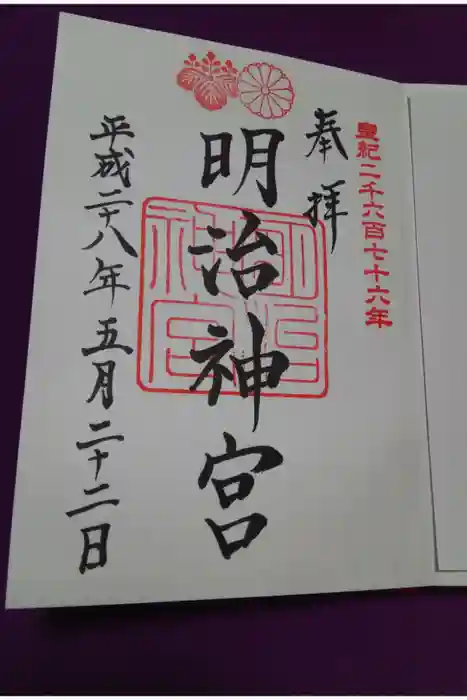 皇紀二千六百七十六年
奉拝
明治神宮
明治神宮
平成二十八年五月二十二日